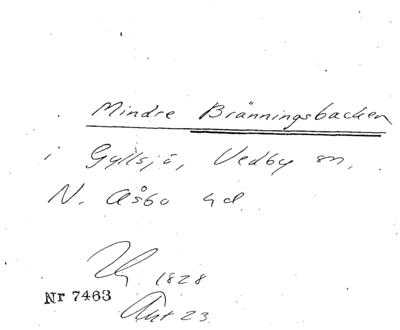 Mindre Bränningsbacken
i Gyllsjö, Vedby sn,
N. Åsbo hd
1828
Nr 7463
Akt 23